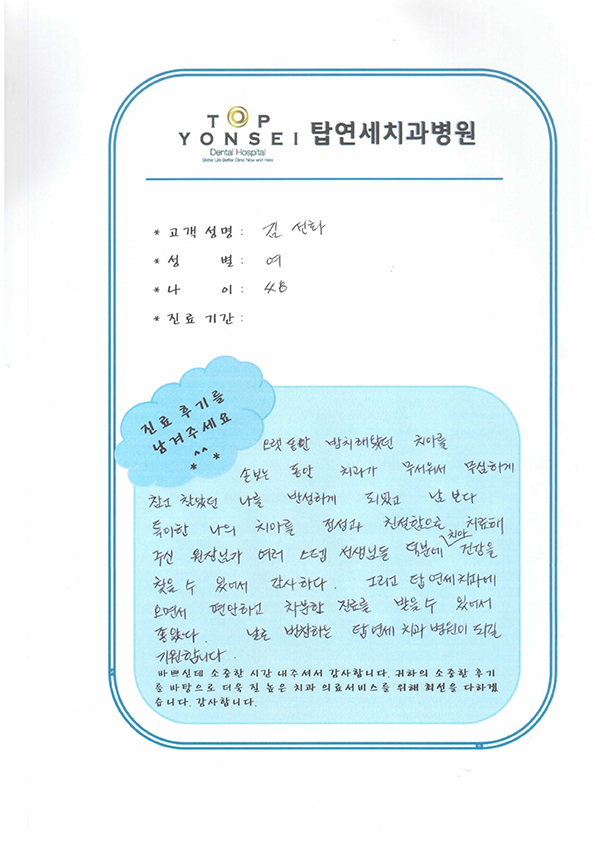 TOP
YONSEI 탑연세치과병원
Dental Hospital
Better Life Better Clinic Now and Here
* 고객 성명 : 김 선화
* 성 별 : 여
* 나 이 : 48
* 진료 기간 :
진료 후기를
남겨주세요
^^
* *
오랫 동안 방치해뒀던 치아를
손보는 동안 치과가 무서워서 무심하게
참고 참았던 나를 반성하게 되었고 남 보다
특이한 나의 치아를 정성과 친절함으로 치료해
주신 원장님과 여러 스텝 선생님들 덕분에 치아 건강을
찾을 수 있어서 감사하다. 그리고 탑연세치과에
오면서 편안하고 차분한 진료를 받을 수 있어서
좋았다. 날로 번창하는 탑연세 치과 병원이 되길
기원합니다.
바쁘신데 소중한 시간 내주셔서 감사합니다. 귀하의 소중한 후기
를 바탕으로 더욱 질 높은 치과 의료서비스를 위해 최선을 다하겠
습니다. 감사합니다.